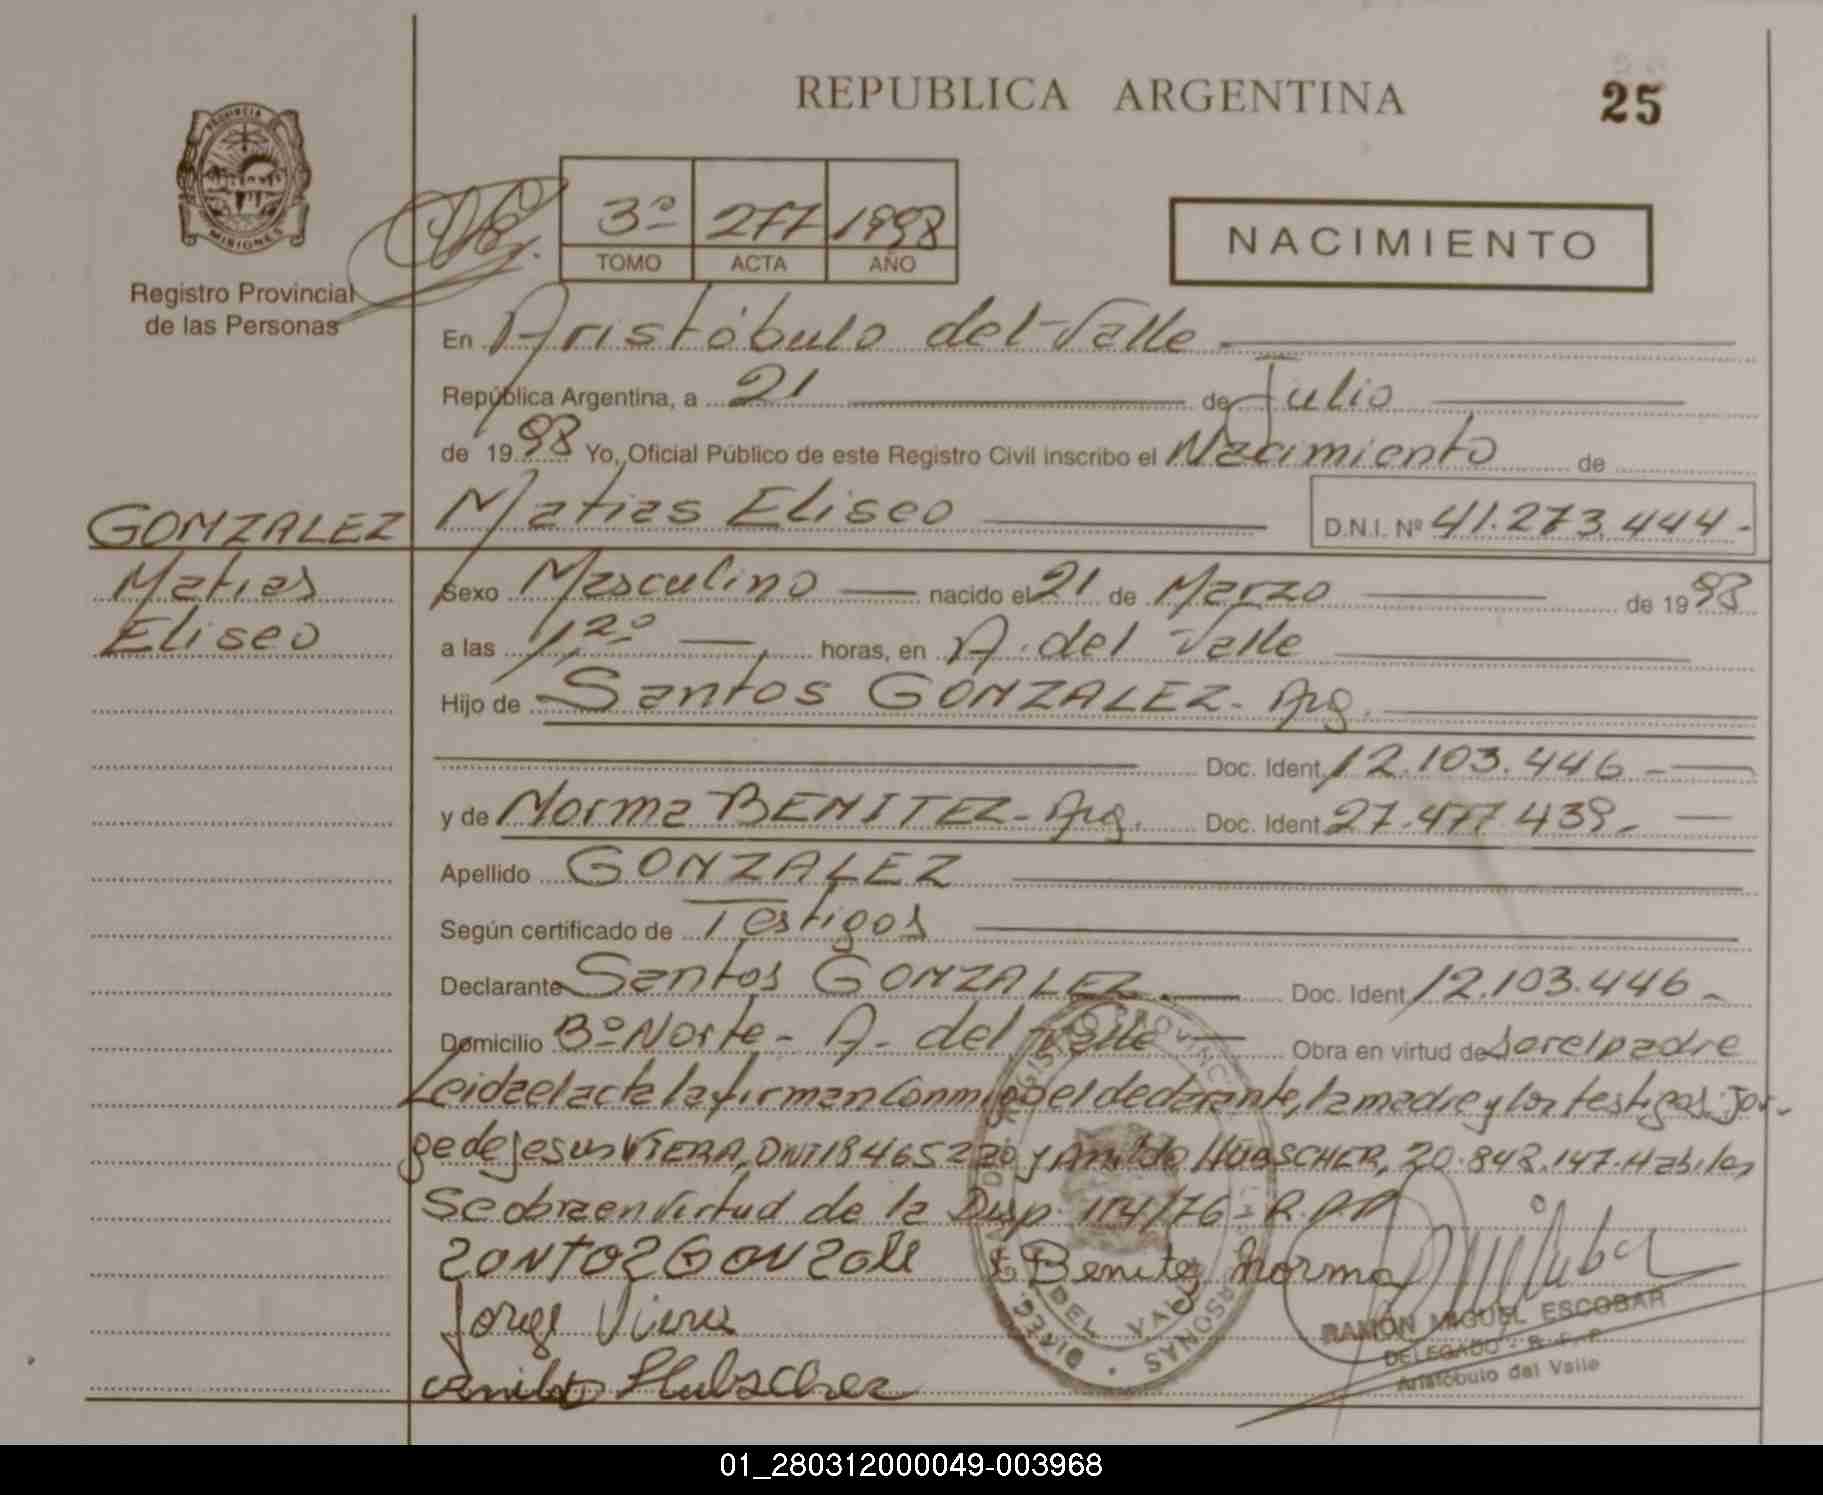 REPUBLICA ARGENTINA
25
PROVINCIA DE
MISIONES
Registro Provincial
de las Personas
3º 277 1998
TOMO ACTA AÑO
NACIMIENTO
En Aristóbulo del Valle
República Argentina, a 21 de Julio
de 1998 Yo, Oficial Público de este Registro Civil inscribo el Nacimiento de
Matias Eliseo D.N.I. Nº 41.273.444-
GONZALEZ
Matias
Eliseo
Sexo Masculino nacido el 21 de Marzo de 1998
a las 12º horas, en A. del Valle
Hijo de Santos GONZALEZ- Arg.
Doc. Ident. 12.103.446-
y de Norma BENITEZ- Arg. Doc. Ident. 27.477.439-
Apellido GONZALEZ
Según certificado de Testigos
Declarante Santos GONZALEZ Doc. Ident. 12.103.446-
Domicilio Bº Norte- A. del Valle Obra en virtud de ser el padre
Leida el acta la firman conmigo el declarante, la madre y los testigos: Jor-
ge de Jesus VIERA, DNI 18465220 y Anildo HUBSCHER, 20.848.147. Habiles
Se obra en virtud de la Disp. 114/76- R.P.P.
Benitez Norma
Jorge Viera
Hubscher
RAMÓN MIGUEL ESCOBAR
DELEGADO - R. P. P.
Aristóbulo del Valle
01_280312000049-003968